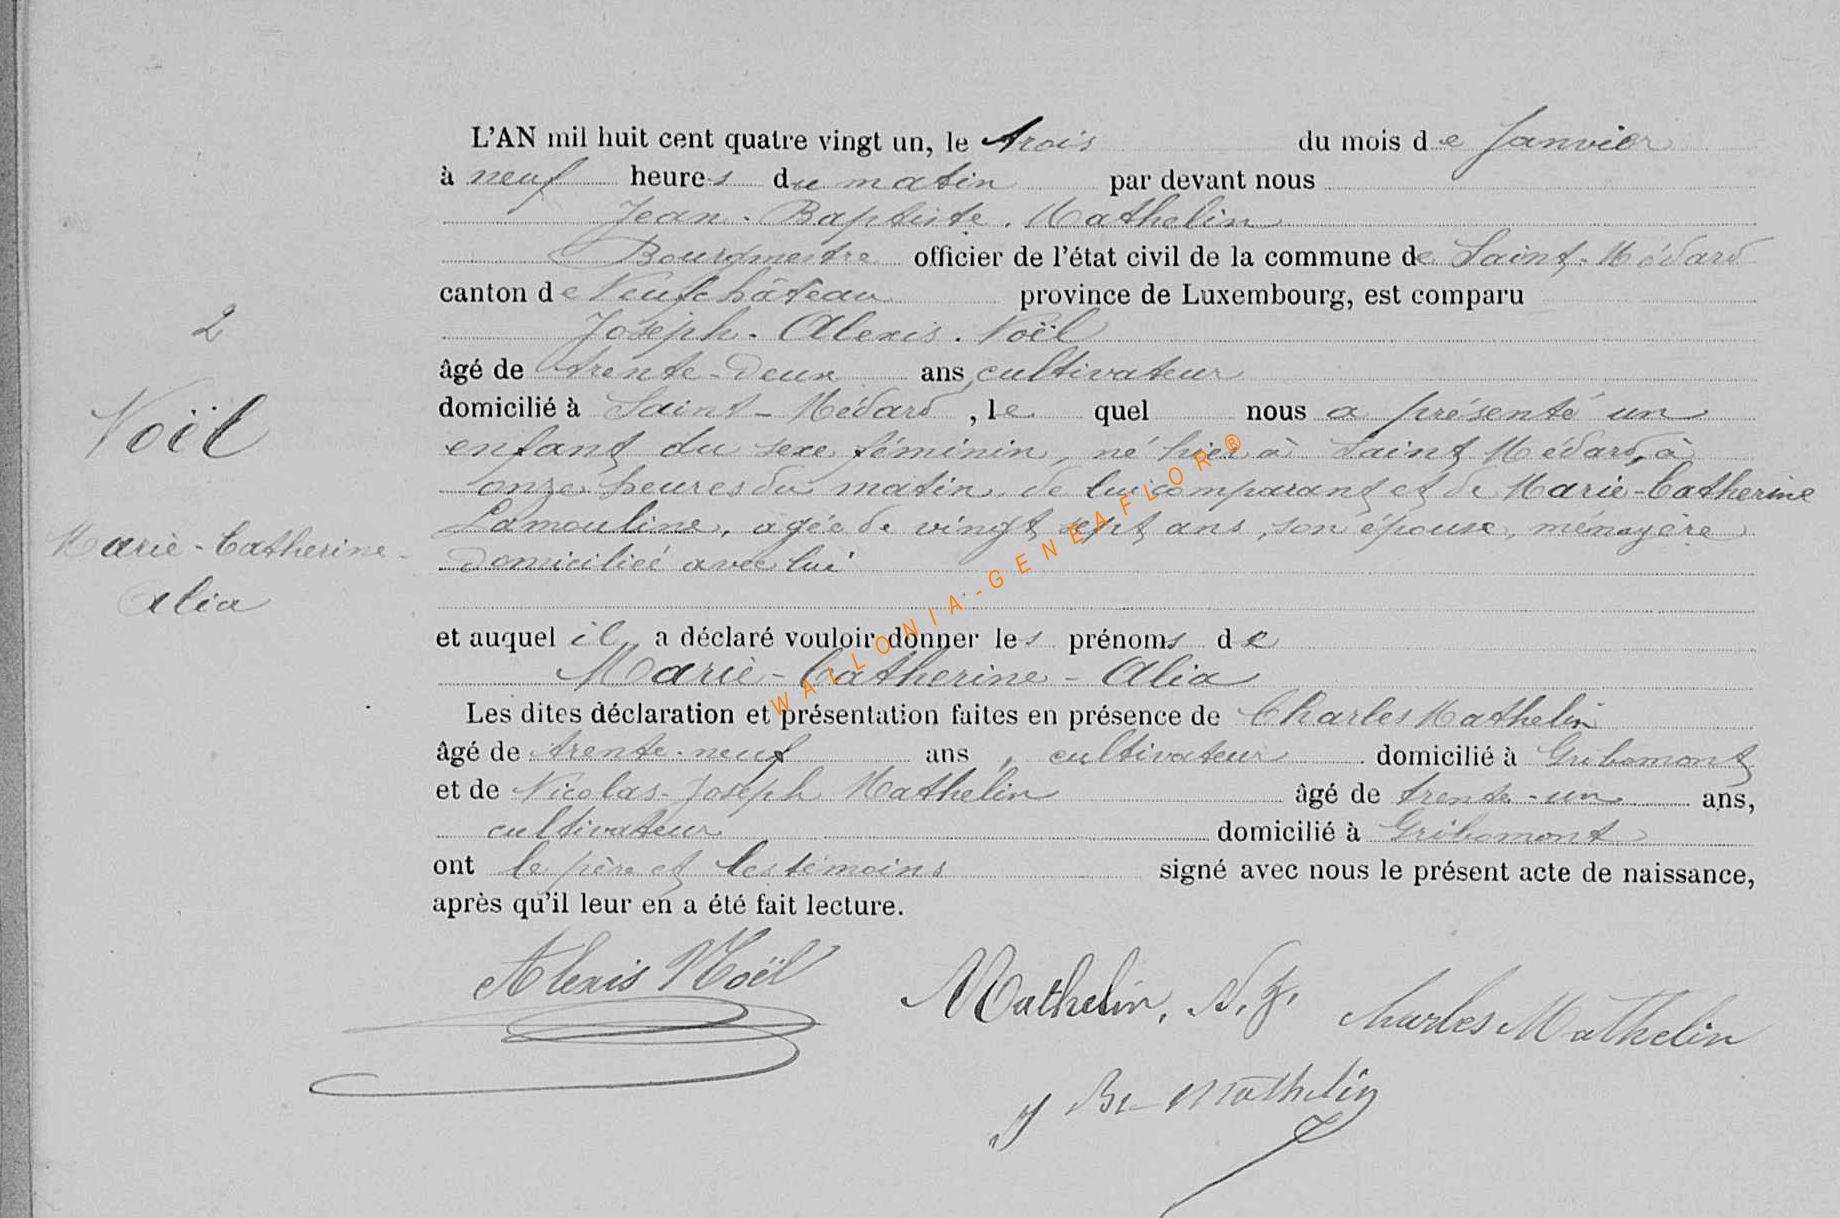 L'AN mil huit cent quatre vingt un, le trois du mois de Janvier
à neuf heures du matin par devant nous
Jean-Baptiste. Mathelin
Bourgmestre officier de l'état civil de la commune de Saint-Médard
canton de Neufchâteau province de Luxembourg, est comparu
2
Joseph-Alexis. Noël
âgé de trente-deux ans, cultivateur
domicilié à Saint-Médard, le quel nous a présenté un
Noël
enfant du sexe féminin, né hier à Saint Médard, à
onze heures du matin, de lui comparant et de Marie-Catherine
Lamouline, agée de vingt sept ans, son épouse, ménagère
Marie-Catherine-
domiciliée avec lui
Alia
et auquel il a déclaré vouloir donner les prénoms de
Marie-Catherine-Alia
Les dites déclaration et présentation faites en présence de Charles Mathelin
âgé de trente-neuf ans, cultivateur domicilié à Gribomont
et de Nicolas-Joseph Mathelin âgé de trente-un ans,
cultivateur domicilié à Gribomont
ont le père et les témoins signé avec nous le présent acte de naissance,
après qu'il leur en a été fait lecture.
Alexis Noël
Mathelin, N. J. Charles Mathelin
J Bte Mathelin
WALLONIA-GENEAFLOR®